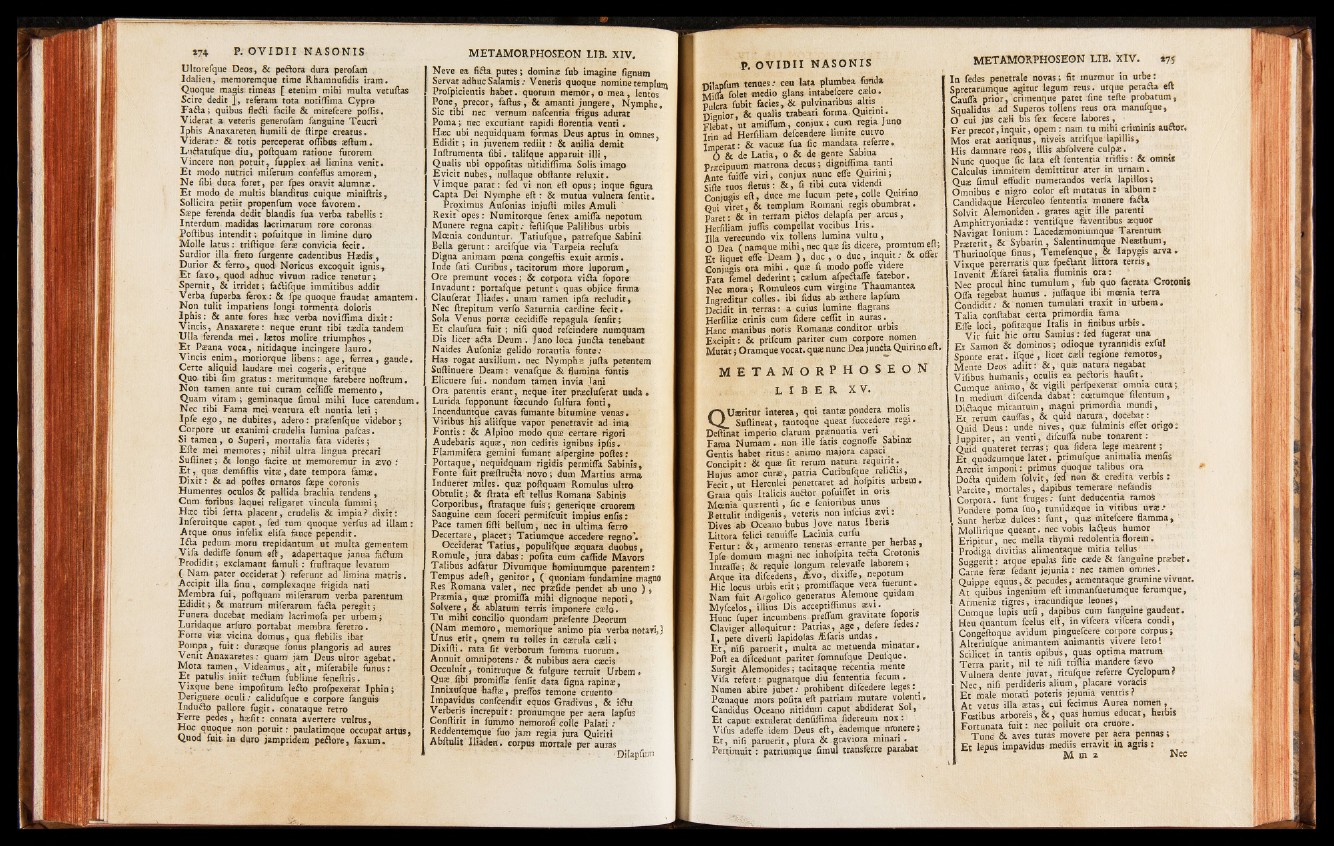 274 P. OVIDII NASONIS
Ultoreſque Deos, & pectora dura peroſam
Idalien, memoremque time Rhamnuſidis iram.
Quoque magis timeas [ etenim mihi multa vetuſtas
Scire dedit ], referam tota notiſſima Cypro
Facta; quibus flecti facile & miteſcere poſſis.
Viderat a veteris generoſam ſanguine Teucri
Iphis Anaxareten humili de ſtirpe creatus.
Viderat: & totis perceperat oſſibus æſtum.
Luctatuſque diu, poſtquam ratione furorem
Vincere non potuit, ſupplex ad limina venit.
Et modo nutrici miſerum confeſſus amorem,
Ne ſibi dura foret, per ſpes oravit alumnæ.
Et modo de multis blanditus cuique miniſtris,
Sollicita petiit propenſum voce favorem.
Sæpe ferenda dedit blandis ſua verba tabellis:
Interdum madidas lacrimarum rore coronas
Poſtibus intendit; poſuitque in limine duro
Molle latus: triſtique feræ convicia fecit.
Surdior illa freto ſurgente cadentibus Hædis,
Durior & ferro, quod Noricus excoquit ignis,
Et ſaxo, quod adhuc vivum radice tenetur;
Spernit, & irridet; factiſque immitibus addit
Verba ſuperba ferox: & ſpe quoque fraudat amantem.
Non tulit impatiens longi tormenta doloris
Iphis: & ante fores hæc verba noviſſima dixit:
Vincis, Anaxarete: neque erunt tibi tædia tandem
Ulla ferenda mei. lætos molire triumphos,
Et Pæana voca, nitidaque incingere lauro.
Vincis enim, moriorque libens: age, ferrea, gaude.
Certe aliquid laudare mei cogeris, eritque
Quo tibi ſim gratus: meritumque fatebere noſtrum.
Non tamen ante tui curam ceſſiſſe memento,
Quam vitam; geminaque ſimul mihi luce carendum.
Nec tibi Fama mei ventura eſt nuntia leti;
Ipſe ego, ne dubites, adero: præſenſque videbor;
Corpore ut exanimi crudelia lumina paſcas.
Si tamen, o Superi, mortalia fata videtis;
Eſte mei memores; nihil ultra lingua precari
Suſtinet; & longo facite ut memoremur in ævo:
Et, quæ demſiſtis vitæ, date tempora famæ.
Dixit: & ad poſtes ornatos ſæpe coronis
Humentes oculos & pallida brachia tendens,
Cum foribus laquei religaret vincula ſummi;
Hæc tibi ſerta placent, crudelis & impia? dixit:
Inſeruitque caput, ſed tum quoque verſus ad illam:
Atque onus infelix eliſa fauce pependit.
Icta pedum motu trepidantum ut multa gementem
Viſa dediſſe ſonum eſt, adapertaque janua factum
Prodidit; exclamant famuli: fruſtraque levatum
( Nam pater occiderat ) referunt ad limina matris.
Accipit illa ſinu, complexaque frigida nati
Membra ſui, poſtquam miſerarum verba parentum
Edidit; & matrum miſerarum facta peregit;
Funera ducebat mediam lacrimoſa per urbem;
Luridaque arſuro portabat membra feretro.
Forte viæ vicina domus, qua flebilis ibat
Pompa, fuit: duræque ſonus plangoris ad aures
Venit Anaxaretes: quam jam Deus ultor agebat.
Mota tamen, Videamus, ait, miſerabile funus:
Et patulis iniit tectum ſublime feneſtris.
Vixque bene impoſitum lecto proſpexerat Iphin;
Deriguere oculi: caliduſque e corpore ſanguis
Inducto pallore fugit. conataque retro
Ferre pedes, hæſit: conata avertere vultus,
Hoc quoque non potuit: paulatimque occupat artus,
Quod fuit in duro jampridem pectore, ſaxum.
METAMORPHOSEON LIB. XIV.
Neve ea ficta putes; dominæ ſub imagine ſignum
Servat adhuc Salamis: Veneris quoque nomine templum
Proſpicientis habet. quorum memor, o mea, lentos
Pone, precor, faſtus, & amanti jungere, Nymphe.
Sic tibi nec vernum naſcentia frigus adurat
Poma; nec excutiant rapidi florentia venti.
Hæc ubi nequidquam formas Deus aptus in omnes,
Edidit; in juvenem rediit: & anilia demit
Inſtrumenta ſibi. taliſque apparuit illi,
Qualis ubi oppoſitas nitidiſſima Solis imago
Evicit nubes, nullaque obſtante reluxit.
Vimque parat: ſed vi non eſt opus; inque figura
Capta Dei Nymphe eſt: & mutua vulnera ſentit.
Proximus Auſonias injuſti miles Amuli
Rexit opes: Numitorque ſenex amiſſa nepotum
Munere regna capit: feſtiſque Palilibus urbis
Mœnia conduntur. Tatiuſque, patreſque Sabini
Bella gerunt: arciſque via Tarpeia recluſa
Digna animam pœna congeſtis exuit armis.
Inde ſati Curibus, tacitorum more luporum,
Ore premunt voces: & corpora victa ſopore
Invadunt: portaſque petunt; quas objice firma
Clauſerat Iliades. unam tamen ipſa recludit,
Nec ſtrepitum verſo Saturnia cardine fecit.
Sola Venus portæ cecidiſſe repagula ſenſit;
Et clauſura fuit; niſi quod reſcindere numquam
Dis licet acta Deum. Jano loca juncta tenebant
Naides Auſoniæ gelido rorantia fonte:
Has rogat auxilium. nec Nymphæ juſta petentem
Suſtinuere Deam: venaſque & flumina fontis
Elicuere ſui. nondum tamen invia Jani
Ora patentis erant, neque iter præcluſerat unda.
Lurida ſupponunt fœcundo ſulfura fonti,
Incenduntque cavas fumante bitumine venas.
Viribus his aliiſque vapor penetravit ad ima
Fontis: & Alpino modo quæ certare rigori
Audebatis aquæ, non ceditis ignibus ipſis.
Flammifera gemini fumant aſpergine poſtes:
Portaque, nequidquam rigidis permiſſa Sabinis,
Fonte fuit præſtructa novo; dum Martius arma
Indueret miles. quæ poſtquam Romulus ultro
Obtulit; & ſtrata eſt tellus Romana Sabinis
Corporibus, ſtrataque ſuis; generique cruorem
Sanguine cum ſoceri permiſcuit impius enſis:
Pace tamen ſiſti bellum, nec in ultima ferro
Decertare, placet; Tatiumque accedere regno.
Occiderat Tatius, populiſque æquata duobus,
Romule, jura dabas: poſita cum caſſide Mavors
Talibus adfatur Divumque hominumque parentem:
Tempus adeſt, genitor, ( quoniam fundamine magno
Res Romana valet, nec præſide pendet ab uno ),
Præmia, quæ promiſſa mihi dignoque nepoti,
Solvere, & ablatum terris imponere cælo.
Tu mihi concilio quondam præſente Deorum
(Nam memoro, memorique animo pia verba notavi,)
Unus erit, quem tu tolles in cærula cæli:
Dixiſti. rata ſit verborum ſumma tuorum.
Annuit omnipotens: & nubibus aera cæcis
Occuluit, tonitruque & fulgure terruit Urbem.
Quæ ſibi promiſſæ ſenſit data ſigna rapinæ,
Innixuſque haſtæ, preſſos temone cruento
Impavidus conſcendit equos Gradivus, & ictu
Verberis increpuit: pronumque per aera lapſus
Conſtitit in ſummo nemoroſi colle Palati:
Reddentemque ſuo jam regia jura Quiriti
Abſtulit Iliaden. corpus mortale per auras
Dilapſum
P. OVIDII NASONIS
Dilapſum tenues: ceu lata plumbea funda
Miſſa ſolet medio glans intabeſcere cælo.
Pulcra ſubit facies, & pulvinaribus altis
Dignior, & qualis trabeati forma Quirini.
Flebat, ut amiſſum, conjux: cum regia Juno
Irin ad Herſiliam deſcendere limite curvo
Imperat: & vacuæ ſua ſic mandata referre.
O & de Latia, o & de gente Sabina
Præcipuum matrona decus; digniſſima tanti
Ante fuiſſe viri, conjux nunc eſſe Quirini;
Siſte tuos fletus: &, ſi tibi cura videndi
Conjugis eſt, duce me lucum pete, colle Quirino
Qui viret, & templum Romani regis obumbrat.
Paret: & in terram pictos delapſa per arcus,
Herſiliam juſſis compellat vocibus Iris.
Illa verecundo vix tollens lumina vultu,
O Dea ( namque mihi, nec quæ ſis dicere, promtum eſt;
Et liquet eſſe Deam ), duc, o duc, inquit: & offer
Conjugis ora mihi. quæ ſi modo poſſe videre
Fata ſemel dederint; cælum aſpectaſſe fatebor.
Nec mora; Romuleos cum virgine Thaumantea
Ingreditur colles. ibi ſidus ab æthere lapſum
Decidit in terras: a cuius lumine flagrans
Herſiliæ crinis cum ſidere ceſſit in auras.
Hanc manibus notis Romanæ conditor urbis
Excipit: & priſcum pariter cum corpore nomen
Mutat; Oramque vocat. quæ nunc Dea juncta Quirino eſt.
METAMORPHOSEON
LIBER XV.
QUæritur interea, qui tantæ pondera molis
Suſtineat, tantoque queat ſuccedere regi.
Deſtinat imperio clarum prænuntia veri
Fama Numam. non ille ſatis cognoſſe Sabinæ
Gentis habet ritus: animo majora capaci
Concipit: & quæ ſit rerum natura requirit.
Hujus amor curæ, patria Curibuſque relictis,
Fecit, ut Herculei penetraret ad hoſpitis urbem.
Graia quis Italicis auctor poſuiſſet in oris
Mœnia quærenti, ſic e ſenioribus unus
Rettulit indigenis, veteris non inſcius ævi:
Dives ab Oceano bubus Jove natus Iberis
Littora felici tenuiſſe Lacinia curſu
Fertur: &, armento teneras errante per herbas,
Ipſe domum magni nec inhoſpita tecta Crotonis
Intraſſe; & requie longum relevaſſe laborem;
Atque ita diſcedens, Ævo, dixiſſe, nepotum
Hic locus urbis erit; promiſſaque vera fuerunt.
Nam fuit Argolico generatus Alemone quidam
Myſcelos, illius Dis acceptiſſimus ævi.
Hunc ſuper incumbens preſſum gravitate ſoporis
Claviger alloquitur: Patrias, age, deſere ſedes:
I, pete diverſi lapidoſas Æſaris undas.
Et, niſi paruerit, multa ac metuenda minatur.
Poſt ea diſcedunt pariter ſomnuſque Deuſque.
Surgit Alemonides; tacitaque recentia mente
Viſa refert: pugnatque diu ſententia ſecum.
Numen abire jubet: prohibent diſcedere leges:
Pœnaque mors poſita eſt patriam mutare volenti.
Candidus Oceano nitidum caput abdiderat Sol,
Et caput extulerat denſiſſima ſidereum nox:
Viſus adeſſe idem Deus eſt, eademque monere;
Et, niſi paruerit, plura & graviora minari.
Pertimuit: patriumque ſimul transferre parabat
METAMORPHOSEON LIB. XIV. 275
In ſedes penetrale novas; fit murmur in urbe:
Spretarumque agitur legum reus. utque peracta eſt
Cauſſa prior, crimenque patet ſine teſte probatum,
Squalidus ad Superos tollens reus ora manuſque,
O cui jus cæli bis ſex fecere labores,
Fer precor, inquit, opem: nam tu mihi criminis auctor.
Mos erat antiquus, niveis atriſque lapillis,
His damnare reos, illis abſolvere culpæ.
Nunc quoque ſic lata eſt ſententia triſtis: & omnis
Calculus immitem demittitur ater in urnam.
Quæ ſimul effudit numerandos verſa lapillos;
Omnibus e nigro color eſt mutatus in album:
Candidaque Herculeo ſententia munere facta
Solvit Alemoniden. grates agit ille parenti
Amphitryoniadæ: ventiſque faventibus æquor
Navigat Ionium: Lacedæmoniumque Tarentum
Præterit, & Sybarin, Salentinumque Neæthum,
Thurinoſque ſinus, Temeſenque, & Iapygis arva.
Vixque pererratis quæ ſpectant littora terris,
Invenit Æſarei fatalia fluminis ora:
Nec procul hinc tumulum, ſub quo ſacrata Crotonis
Oſſa tegebat humus. juſſaque ibi mœnia terra
Condidit: & nomen tumulati traxit in urbem.
Talia conſtabat certa primordia fama
Eſſe loci, poſitæque Italis in finibus urbis.
Vir fuit hic ortu Samius: ſed fugerat una
Et Samon & dominos; odioque tyrannidis exſul
Sponte erat. iſque, licet cæli regione remotos,
Mente Deos adiit: &, quæ natura negabat
Viſibus humanis, oculis ea pectoris hauſit.
Cumque animo, & vigili perſpexerat omnia cura;
In medium diſcenda dabat: cœtumque ſilentum,
Dictaque mirantum, magni primordia mundi,
Et rerum cauſſas, & quid natura, docebat:
Quid Deus: unde nives, quæ fulminis eſſet origo:
Juppiter, an venti, diſcuſſa nube tonarent:
Quid quateret terras; qua ſidera lege mearent;
Et quodcumque latet. primuſque animalia menſis
Arcuit imponi: primus quoque talibus ora
Docta quidem ſolvit, ſed non & credita verbis:
Parcite, mortales, dapibus temerare nefandis
Corpora. ſunt fruges: ſunt deducentia ramos
Pondere poma ſuo, tumidæque in vitibus uvæ:
Sunt herbæ dulces: ſunt, quæ miteſcere flamma,
Mollirique queant. nec vobis lacteus humor
Eripitur, nec mella thymi redolentia florem.
Prodiga divitias alimentaque mitia tellus
Suggerit: atque epulas ſine cæde & ſanguine præbet.
Carne feræ ſedant jejunia: nec tamen omnes.
Quippe equus, & pecudes, armentaque gramine vivunt.
At quibus ingenium eſt immanſuetumque ferumque,
Armeniæ tigres, iracundique leones,
Cumque lupis urſi, dapibus cum ſanguine gaudent.
Heu quantum ſcelus eſt, in viſcera viſcera condi,
Congeſtoque avidum pingueſcere corpore corpus;
Alteriuſque animantem animantis vivere leto!
Scilicet in tantis opibus, quas optima matrum
Terra parit, nil te niſi triſtia mandere ſævo
Vulnera dente juvat, rituſque referre Cyclopum?
Nec, niſi perdideris alium, placare voracis
Et male morati poteris jejunia ventris?
At vetus illa ætas, cui fecimus Aurea nomen,
Fœtibus arboreis, &, quas humus educat, herbis
Fortunata fuit: nec polluit ora cruore.
Tunc & aves tutas movere per aera pennas;
Et lepus impavidus mediis erravit in agris:
M m 2 Nec